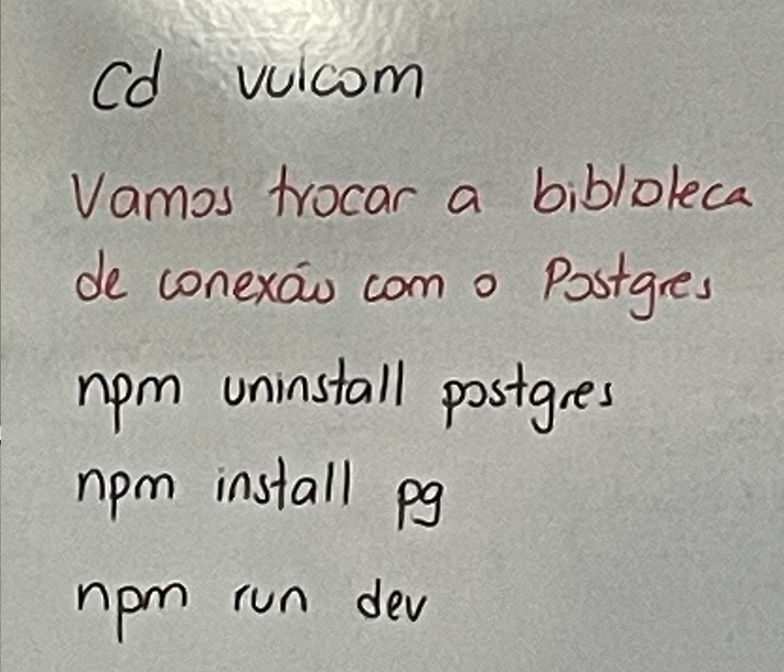 Cd vulcom
Vamos trocar a biblioteca
de conexão com o Postgres
npm uninstall postgres
npm install pg
npm run dev